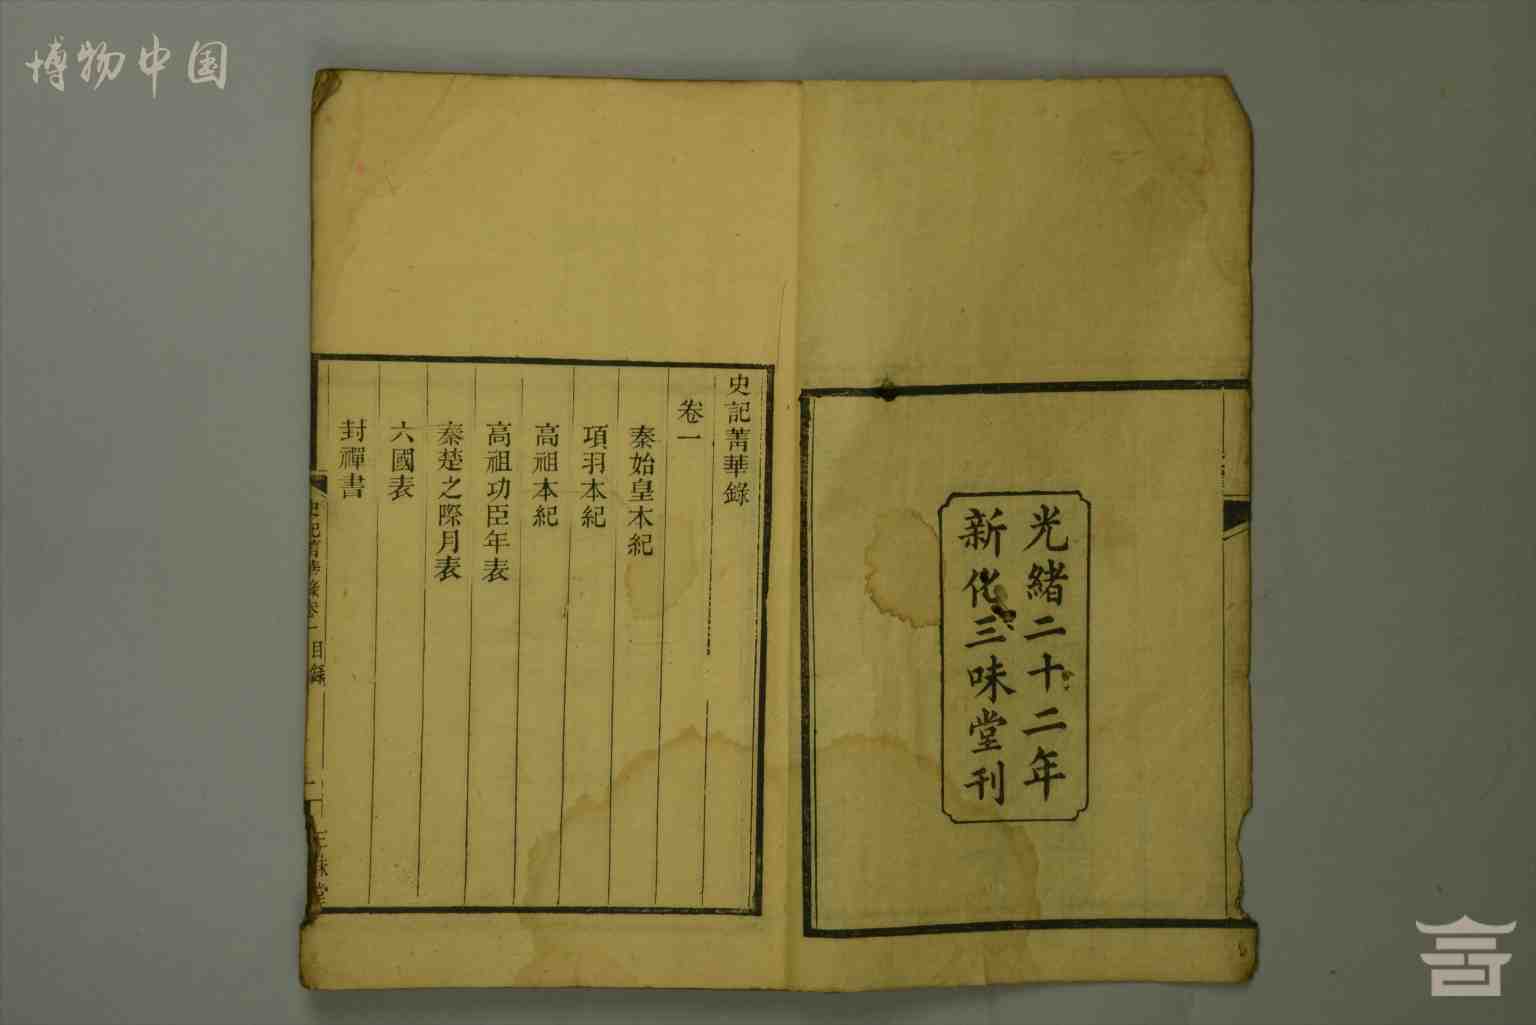 博物中国
光緒二十二年
新化三味堂刊
史記菁華錄
卷一
秦始皇本紀
項羽本紀
高祖本紀
高祖功臣年表
秦楚之際月表
六國表
封禪書
史記菁華錄卷一 目錄
一
三味堂